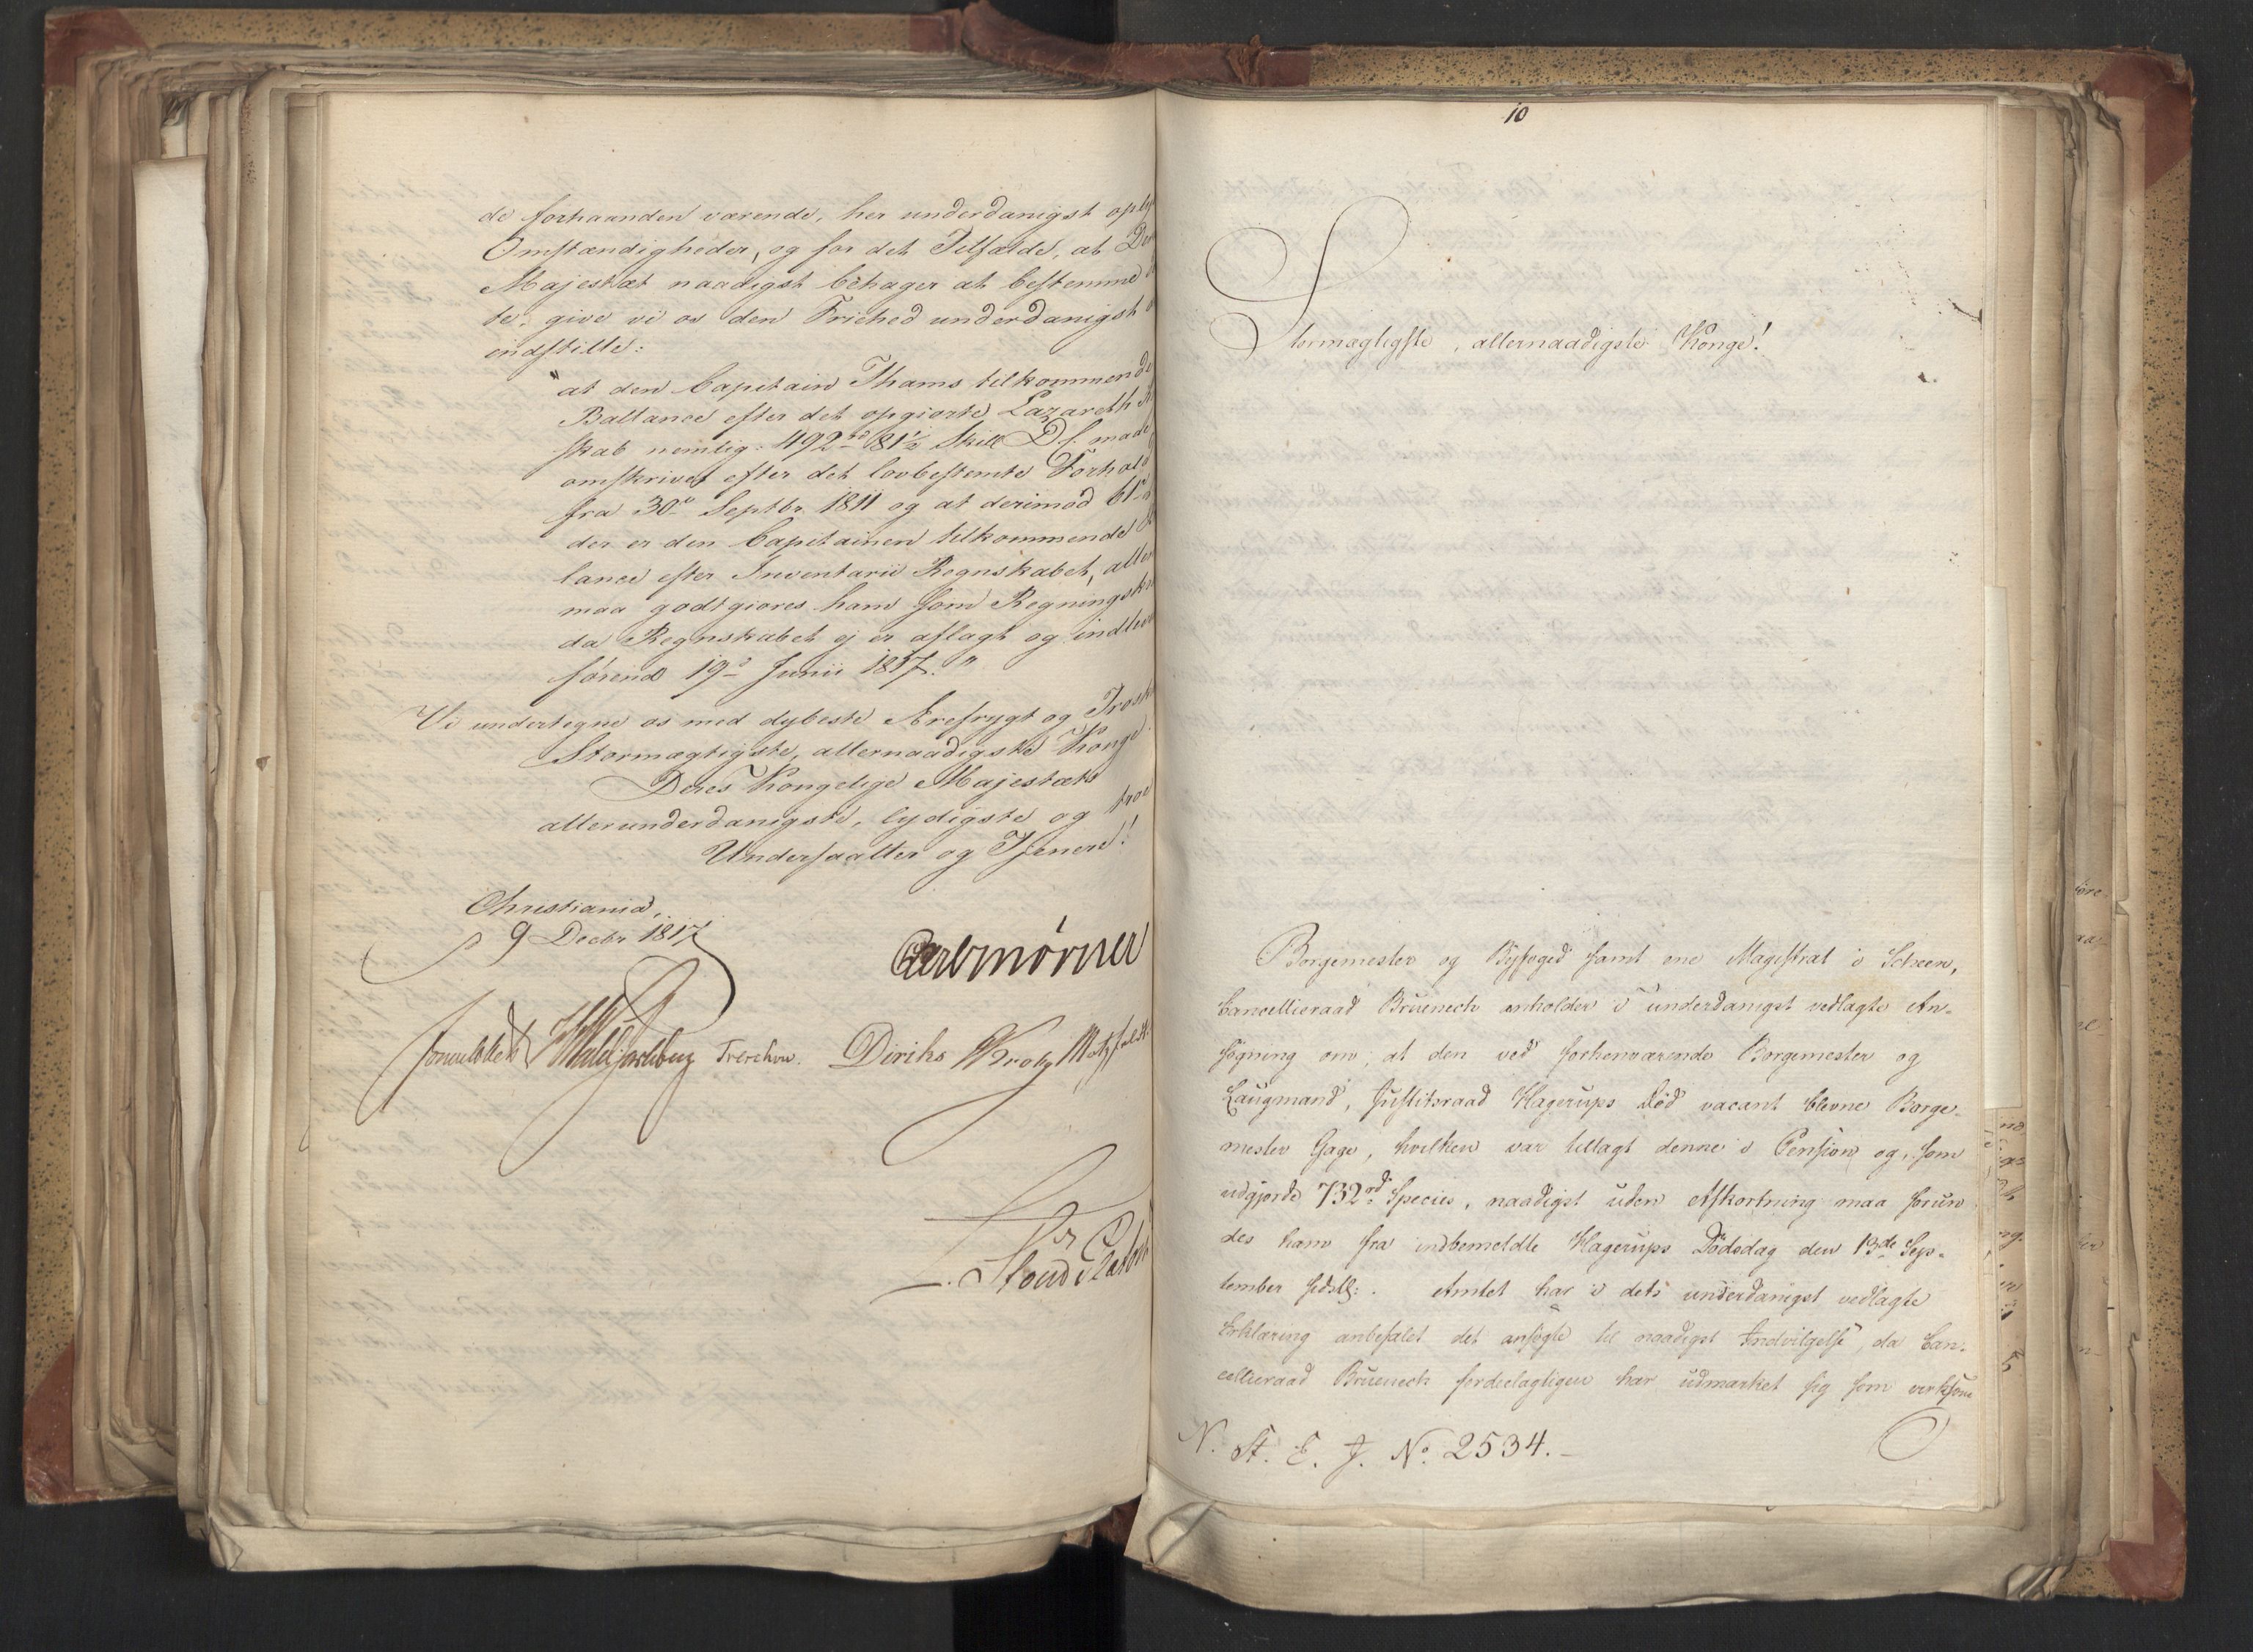 de forhaanden værende, her underdanigst oply
Omstændigheder, og for det Tilfælde, at De
Majestæt naadigst behager at bestemme
te, give vi os den Friehed underdanigst
indstille:
"at den Capitain Thams tilkommende
Ballance efter det opgiorte Lazareth R
skab nemlig: 492 rd 81½ Skill D.C. maa
omskrives efter det lovbestemte Forhold
fra 30te Septbr. 1811 og at derimod 61rd
der er den Capitainen tilkommende
lance efter Inventarii Regnskabet, aller
maa godtgiøres ham som Regnings
da Regnskabet ej er aflagt og indlev
førend 19de Junii 1817."
Vi undertegne os med dybeste Ærefrygt og Trosk
Stormægtigste, allernaadigste Konge
Deres Kongelige Majestæts
allerunderdanigste, lydigste og troe
Undersaatter og Tjenere!
Christiania,
9 Decbr 1817
Carl Mørner
Sommerhielm Wedeljarlsberg Treschow. Diriks Krog Motzfeldt
10
Stormægtigste, allernaadigste Konge!
Borgemester og Byefoged samt ene Magistrat i Scheen,
Cancellieraad Brueneck anholder i underdanigst vedlagte An-
søgning om, at den ved forhenværende Borgemester og
Laugmand, Justitsraad Hagerups Død vacant blevne Borge-
mester Gage, hvilken var tillagt denne i Pension og, som
udgjorde 732rd Species, naadigst uden Afkortning maa forun
des ham fra indbemeldte Hagerups Dødsdag den 13de Sep-
tember sidstl:. Amtet har i dets underdanigst vedlagte
Erklæring anbefalet det ansøgte til naadigst Indvilgelse, da Can-
cellieraad Brueneck fordeelagtigen har udmærket sig som virksom
N. St. E. J. No. 2534.